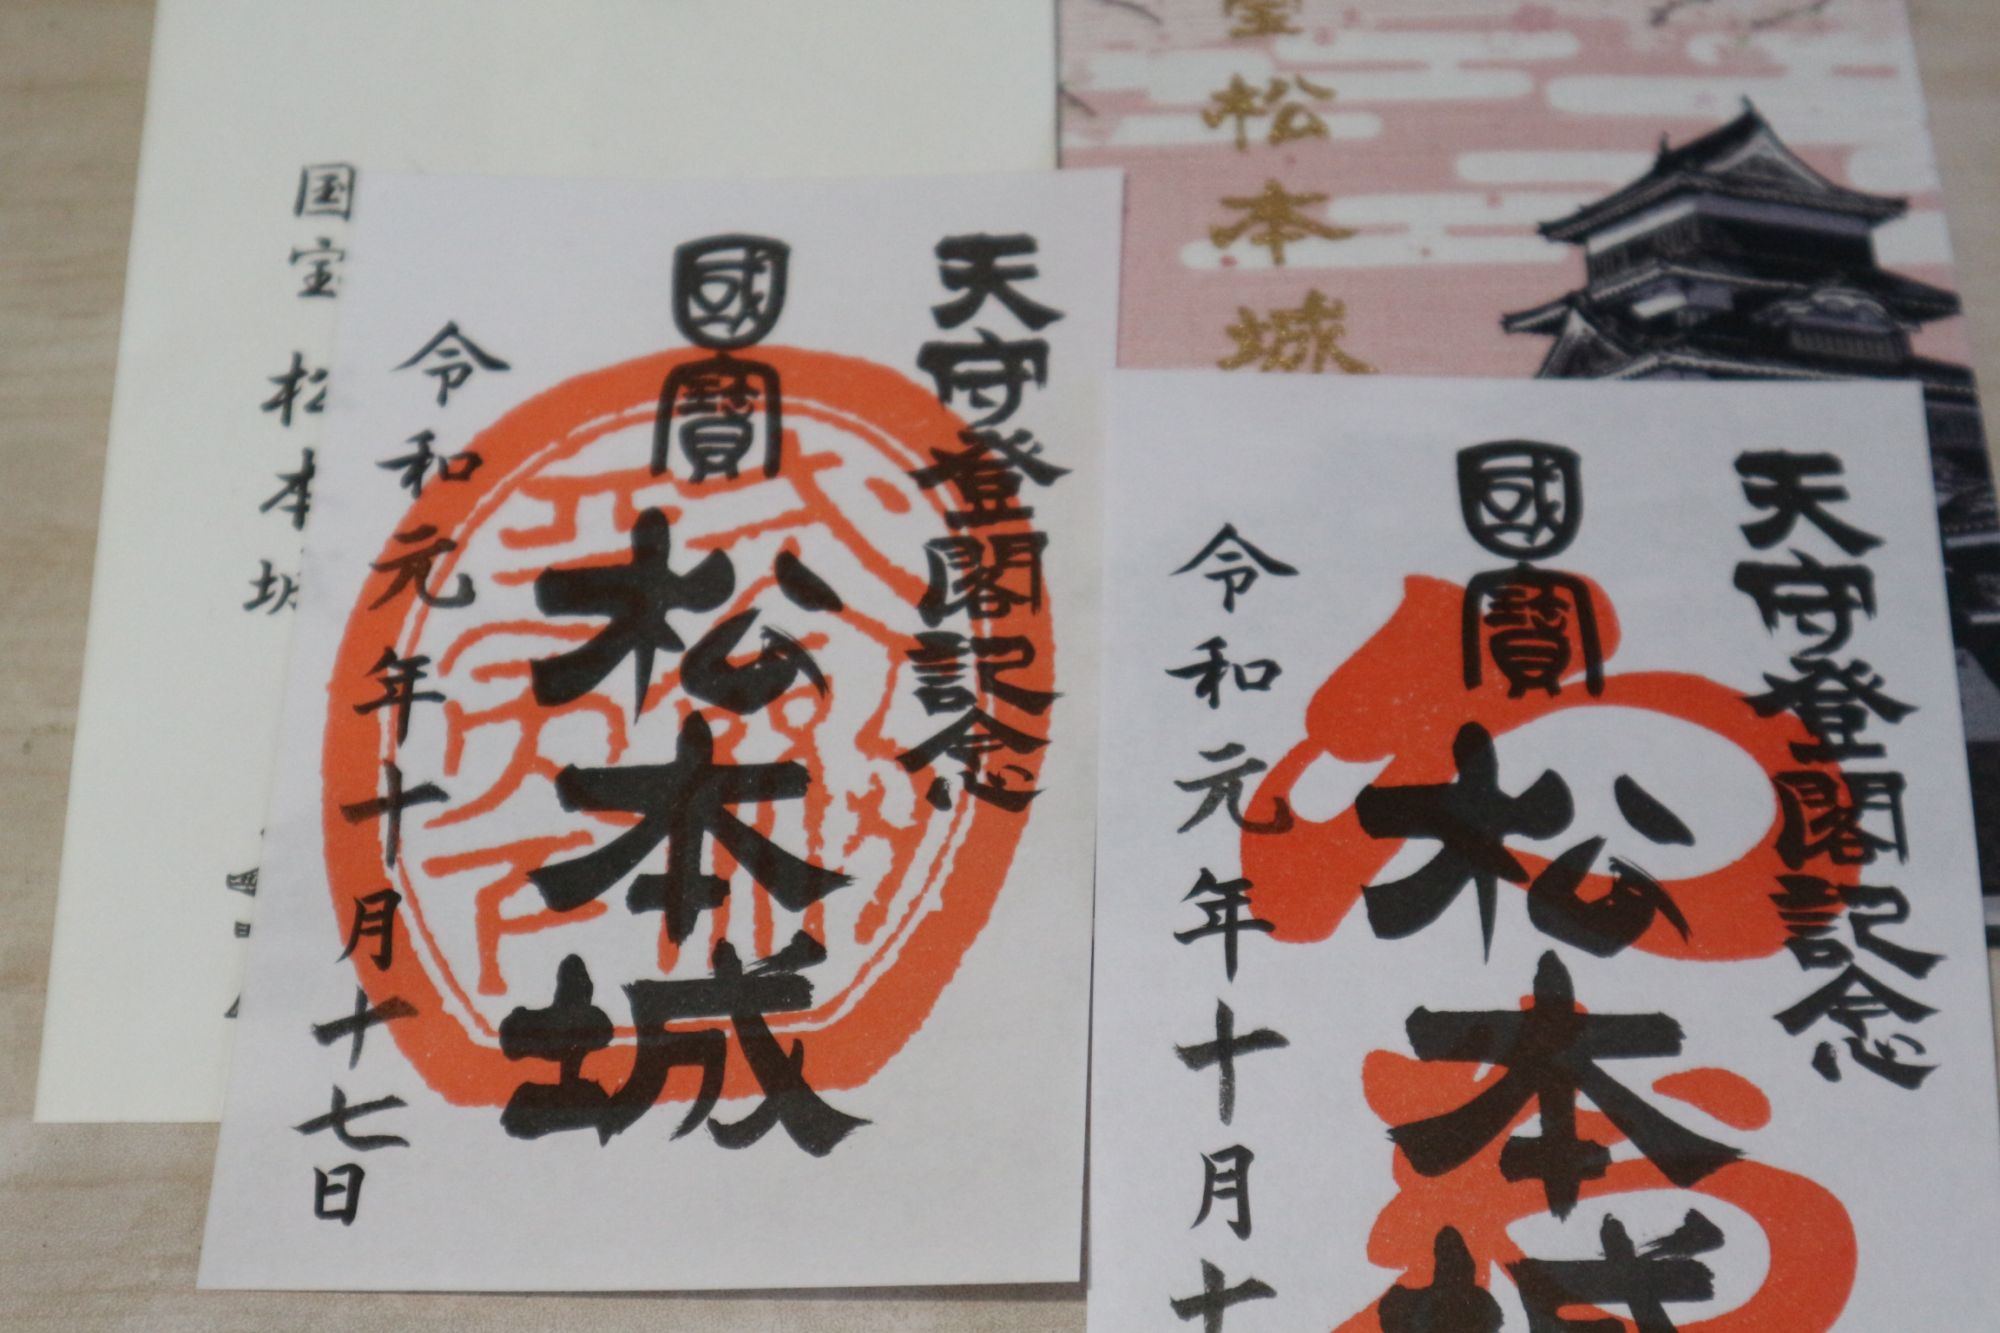 国宝 松本城
天守登閣記念
國寳
松本城
令和元年十月十七日
松本城
天守登閣記念
國寳
松本城
令和元年十月十